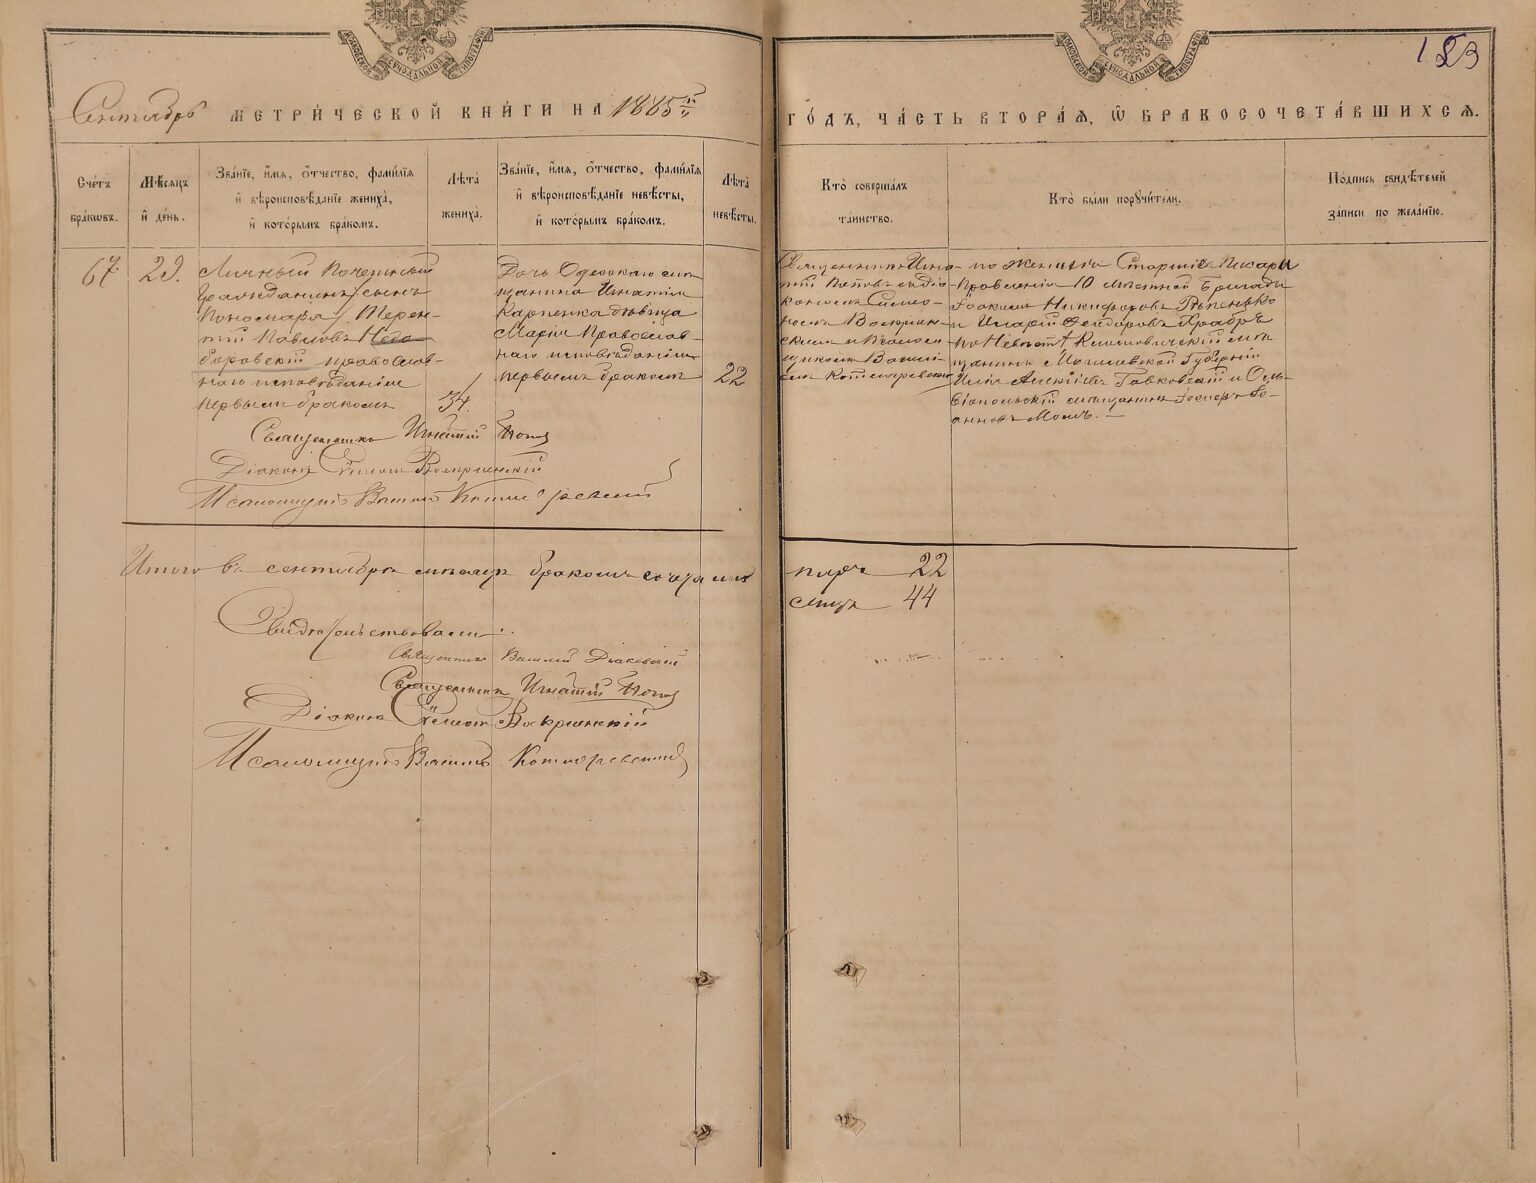 МОСКОВСКОЙ СѴНОДАЛЬНОЙ ТИПОГРАФІИ
МОСКОВСКОЙ СѴНОДАЛЬНОЙ ТИПОГРАФІИ
183
Сентябрь МЕТРИ́ЧЕСКОЙ КНИ́ГИ НА 1885й
ГО́ДЪ, ЧА́СТЬ ВТОРА́Ѧ, Ѽ БРАКОСОЧЕТА́ВШИХСѦ.
Сче́тъ бра́кѡвъ.
Мѣ́сѧцъ и҆ де́нь.
Зва́нїе, и҆́мѧ, ѻ҆́тчество, фами́лїѧ
и҆ вѣроисповѣ́данїе жениха̀,
и҆ кото́рымъ бра́комъ.
Лѣ́та жениха̀.
Зва́нїе, и҆́мѧ, ѻ҆́тчество, фами́лїѧ
и҆ вѣроисповѣ́данїе невѣ́сты,
и҆ кото́рымъ бра́комъ.
Лѣ́та невѣ́сты.
Кто̀ соверша́лъ
та́инство.
Кто̀ бы́ли порꙋчи́тели.
По́дпись свидѣ́телей
за́писи по жела́нїю.
67.
29.
Личный Почетный
Гражданинъ, сынъ
Пономаря, Терен-
тій Павловъ Небо-
боровскій православ-
наго исповѣданія
первымъ бракомъ
34.
Дочь Одесскаго мѣ-
щанина Игнатія
Карпенка дѣвица
Марія Православ-
наго исповѣданія
первымъ бракомъ
22
Священникъ Игна-
тій Поповъ съ діа-
кономъ Симео-
номъ Воскресен-
скимъ и Псалом-
щикомъ Васи-
емъ Котляревскимъ
по женихѣ Старшіе Писари
Правленія 10 мѣстной бригады
Іоакимъ Никифоровъ Рѣпенько
и Иларій Ѳеодоровъ Храбръ
по невѣстѣ мѣ-
щанинъ Могилевской Губерніи
Илія Алексіевъ Гавковскій и Оль-
віопольскій мѣщанинъ Іо-
анновъ
Священникъ Игнатій Попов
Діаконъ Симеон Воскресенскій
Псаломщикъ Василій Котляревскій
Итого въ сентябрѣ мѣсяцѣ бракомъ сочетано
паръ 22
лицъ 44
Свидѣтельствовали:
Священникъ Василій Діаковскій
Священникъ Игнатій Попов
Діаконъ Симеон Воскресенскій
Псаломщикъ Василій Котляревскій